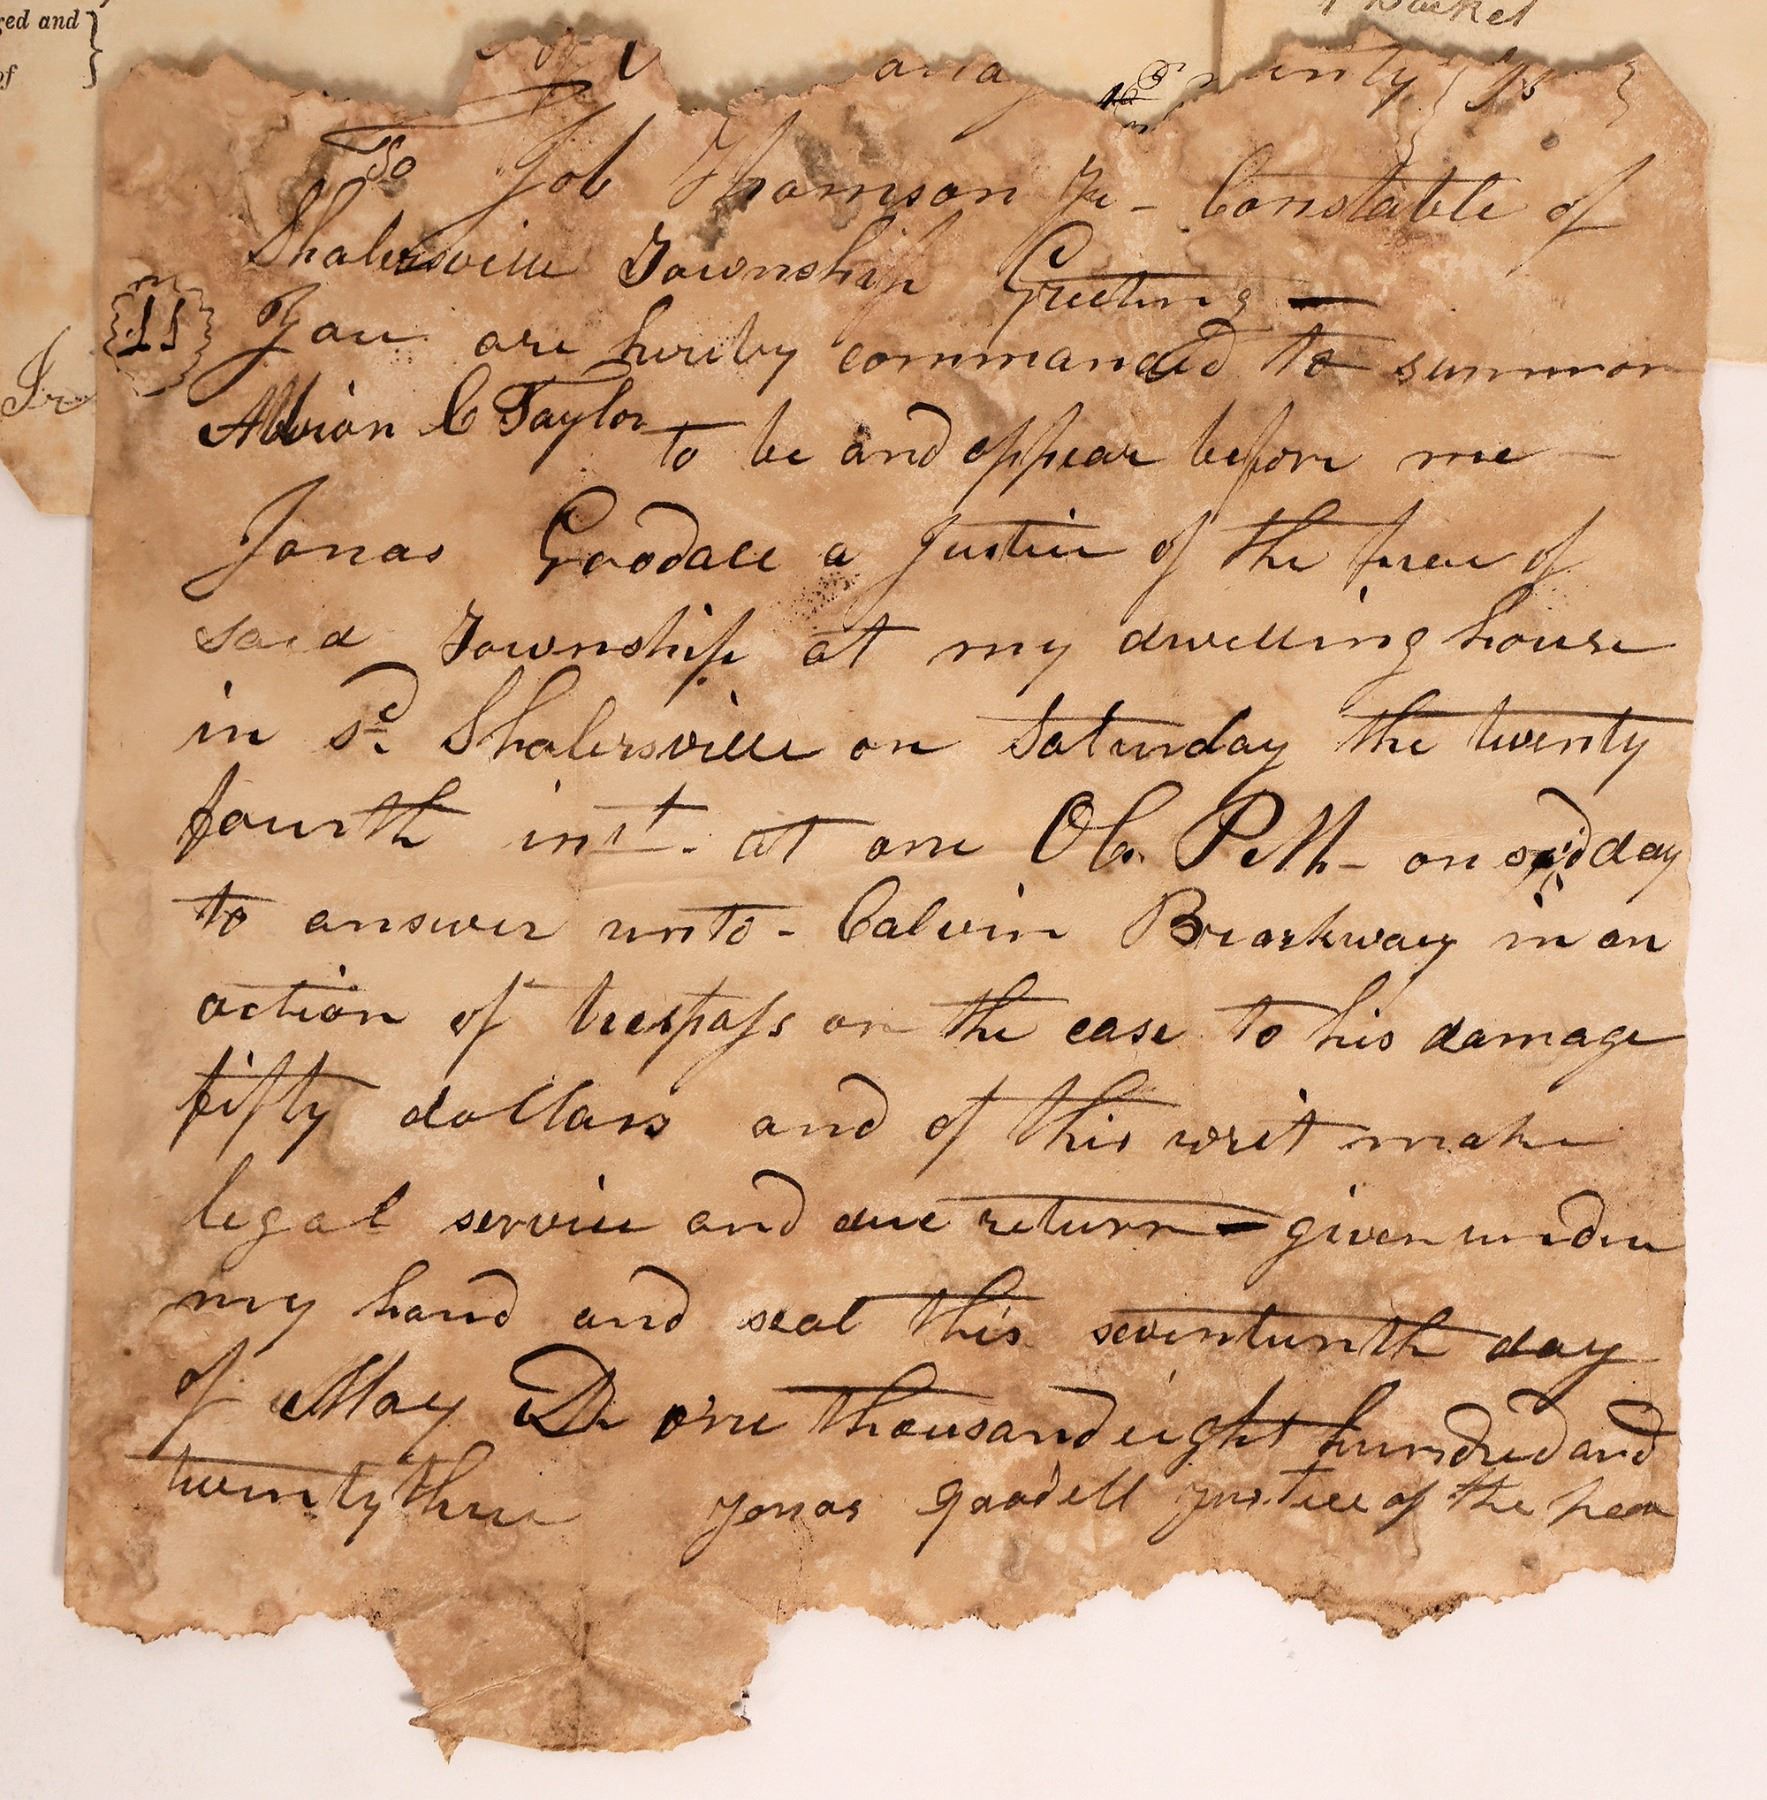 ed and
of
Docket
To Job Thomson Jr - Constable of
Shalersville Township Greeting -
11
You are hereby commanded to summon
Jr
Albion C Taylor to be and appear before me -
Jonas Goodale a Justice of the peace of
said Township at my dwelling house
in sd. Shalersville on Saturday the twenty
fourth inst. at one OC. P.M - on said day
to answer unto - Calvin Brarkway in an
action of trespass on the case to his damage
fifty dollars and of this writ make
legal service and due return - given under
my hand and seal this seventeenth day
of May D one thousand eight hundred and
twenty three Jonas goodell Justice of the peace